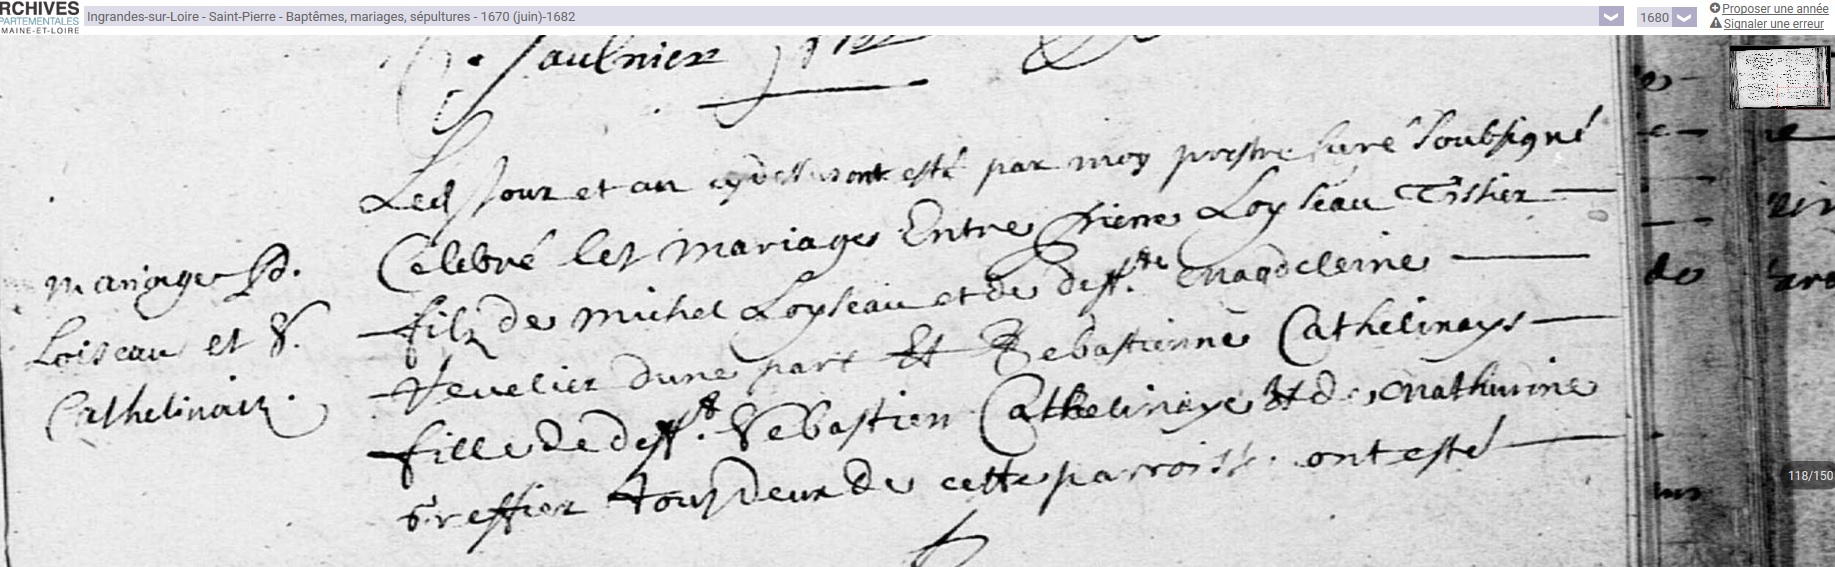 RCHIVES
PARTEMENTALES
MAINE-ET-LOIRE
Ingrandes-sur-Loire - Saint-Pierre - Baptêmes, mariages, sépultures - 1670 (juin)-1682
1680
Proposer une année
Signaler une erreur
118/150
Saulnier
Led Jour et an cydessus ont esté par moy prestre curé Soubsigné
Celebré les mariages Entre Pierre Loyseau Tissier
filz de michel Loyseau et de deff.te magdeleine
dune part Et Sebastienne Cathelinays
fille de deff.t Sebastien Cathelinaye Et de mathurine
Greffier tous deux de cette parroisse ont esté
mariage P.
Loiseau et S.
Cathelinais.